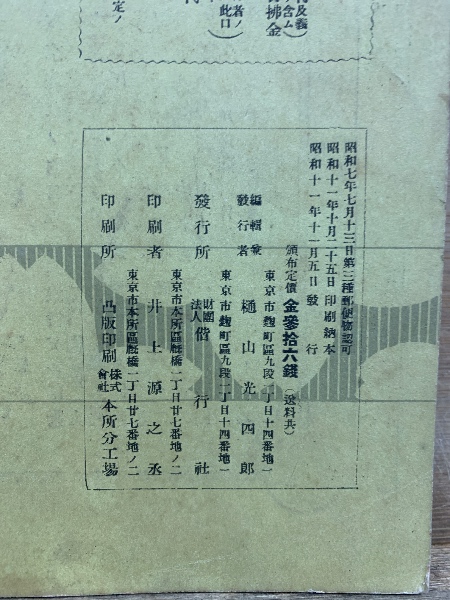 及義
ヲ含ム)
拂金
者ノ
此口)
定ノ
昭和七年七月十三日第三種郵便物認可
昭和十一年十月二十五日印刷納本
昭和十一年十一月五日發行
頒布定價 金參拾六錢 (送料共)
東京市麴町區九段一丁目十四番地一
編輯兼發行者 樋山光四郎
東京市麴町區九段一丁目十四番地一
發行所 財團法人偕行社
東京市本所區厩橋一丁目廿七番地ノ二
印刷者 井上源之丞
東京市本所區厩橋一丁目廿七番地ノ二
印刷所 凸版印刷株式會社本所分工場